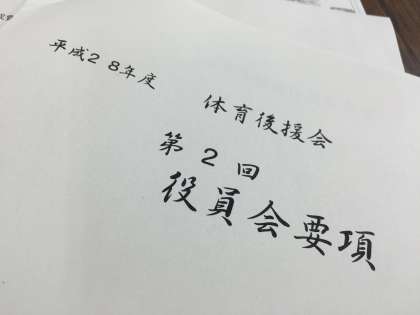 平成28年度
体育後援会
第2回
役員会要項